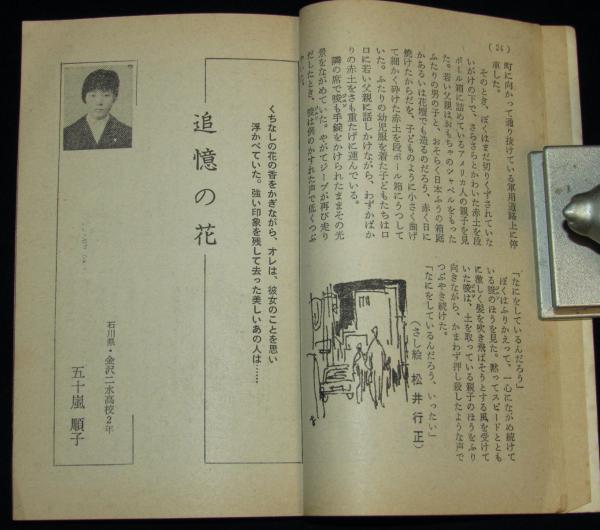 (26)
町に向かって通り抜けている軍用道路上に停
車した。
そのとき、ぼくはまだ切りくずされていな
いがけの下で、さらさらとかわいた赤土を段
ボール箱に詰めているアメリカ人の親子を見
た。若い父親はおもちゃのシャベルをもった
ふたりの男の子と、おそらく日本ふうの箱庭
かあるいは花壇でも造るのだろう、赤く日に
焼けたからだを、子どものように小さく曲げ
て細かく砕けた赤土を段ボール箱にうつして
いた。ふたりの幼児服を着た子どもたちは口
口に若い父親に話しかけながら、わずかばか
りの赤土をさも重たげに運んでいる。
隣の席で峻も手錠をかけられたままその光
景をながめていた。やがてジープが再び走り
だしたとき、峻は例のかすれた声で低くつぶ
やいた。
「なにをしているんだろう」
ぼくはふりかえって、一心にながめ続けて
いる峻のほうを見た。黙ってスピードととも
に激しく髪を吹き飛ばそうとする風を受けて
いた峻は、土を取っている親子のほうをふり
向きながら、かまわず押し殺したような声で
つぶやき続けた。
「なにをしているんだろう、いったい」
(さし絵 松井行正)
くちなしの花の香をかぎながら、オレは、彼女のことを思い
浮かべていた。強い印象を残して去った美しいあの人は……
追憶の花
石川県・金沢二水高校2年
五十嵐 順子